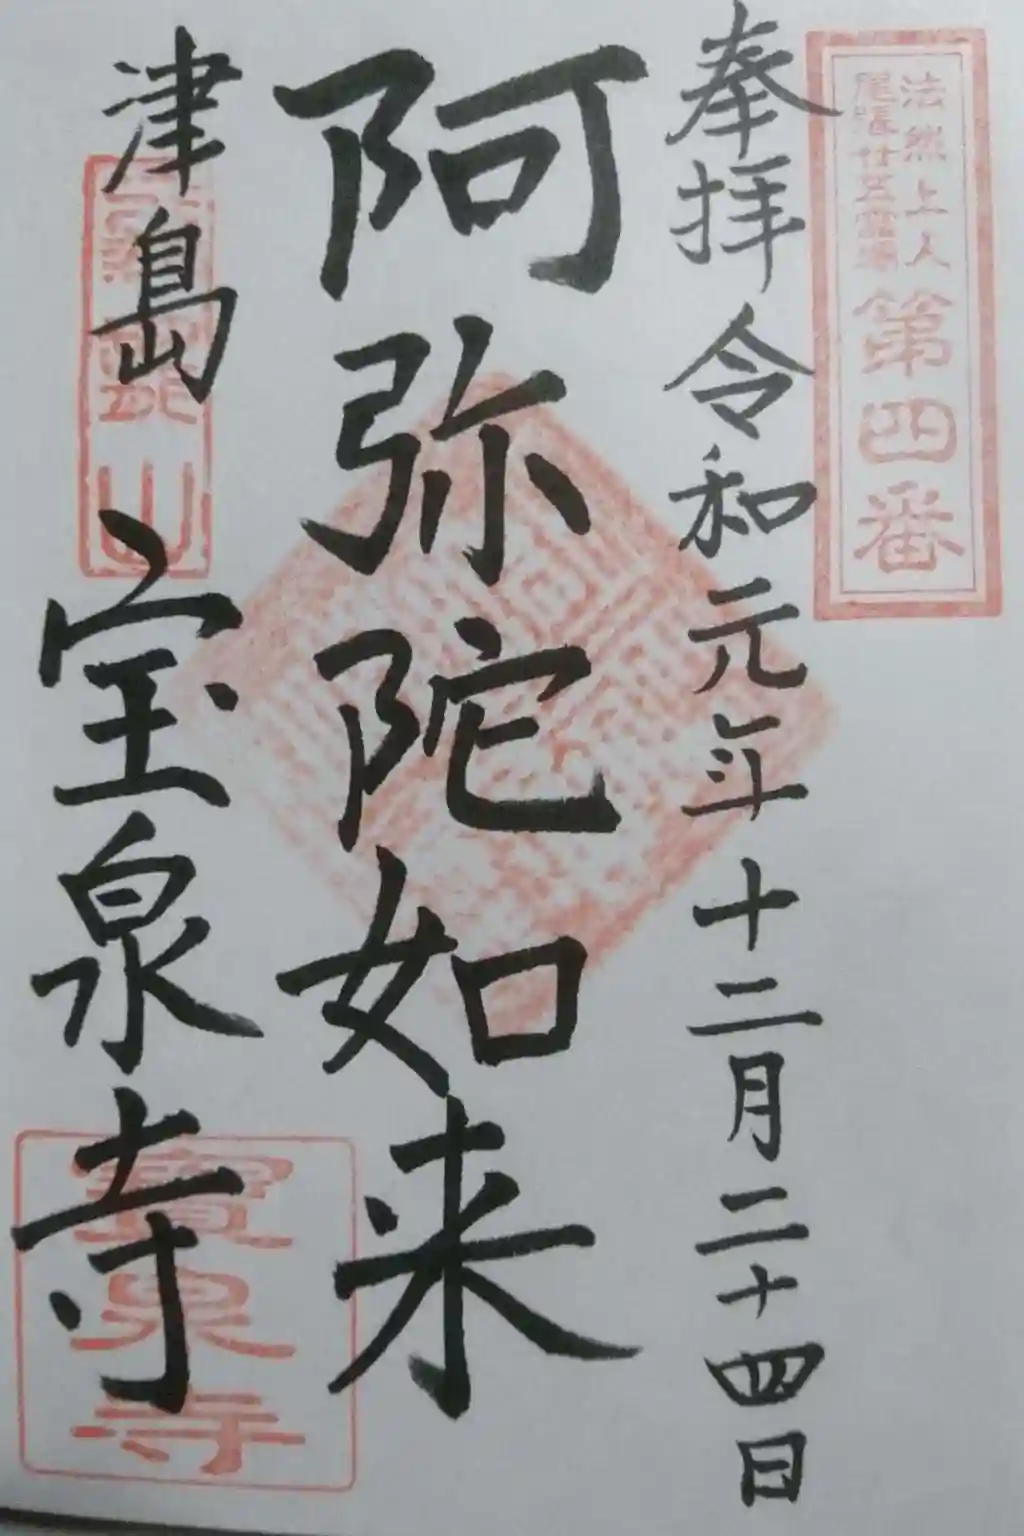 法然上人
尾張廿五霊場
第四番
奉拝 令和元年十二月二十四日
阿弥陀如来
津島 宝泉寺
寶泉寺